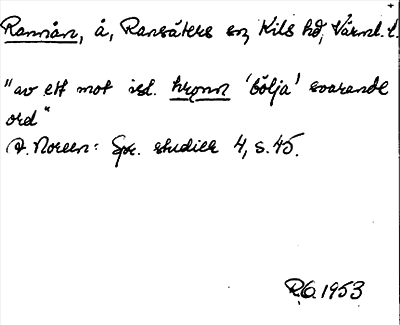 Rannån, å, Ransäters sn, Kils hd, Värml. l.
"av ett mot isl. hrǫnn 'bölja' svarande
ord"
A. Noreen: Spr. studier 4, s. 45.
R.O. 1953